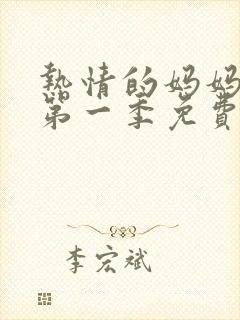 熱情的妈妈
第一季免費
李宏斌